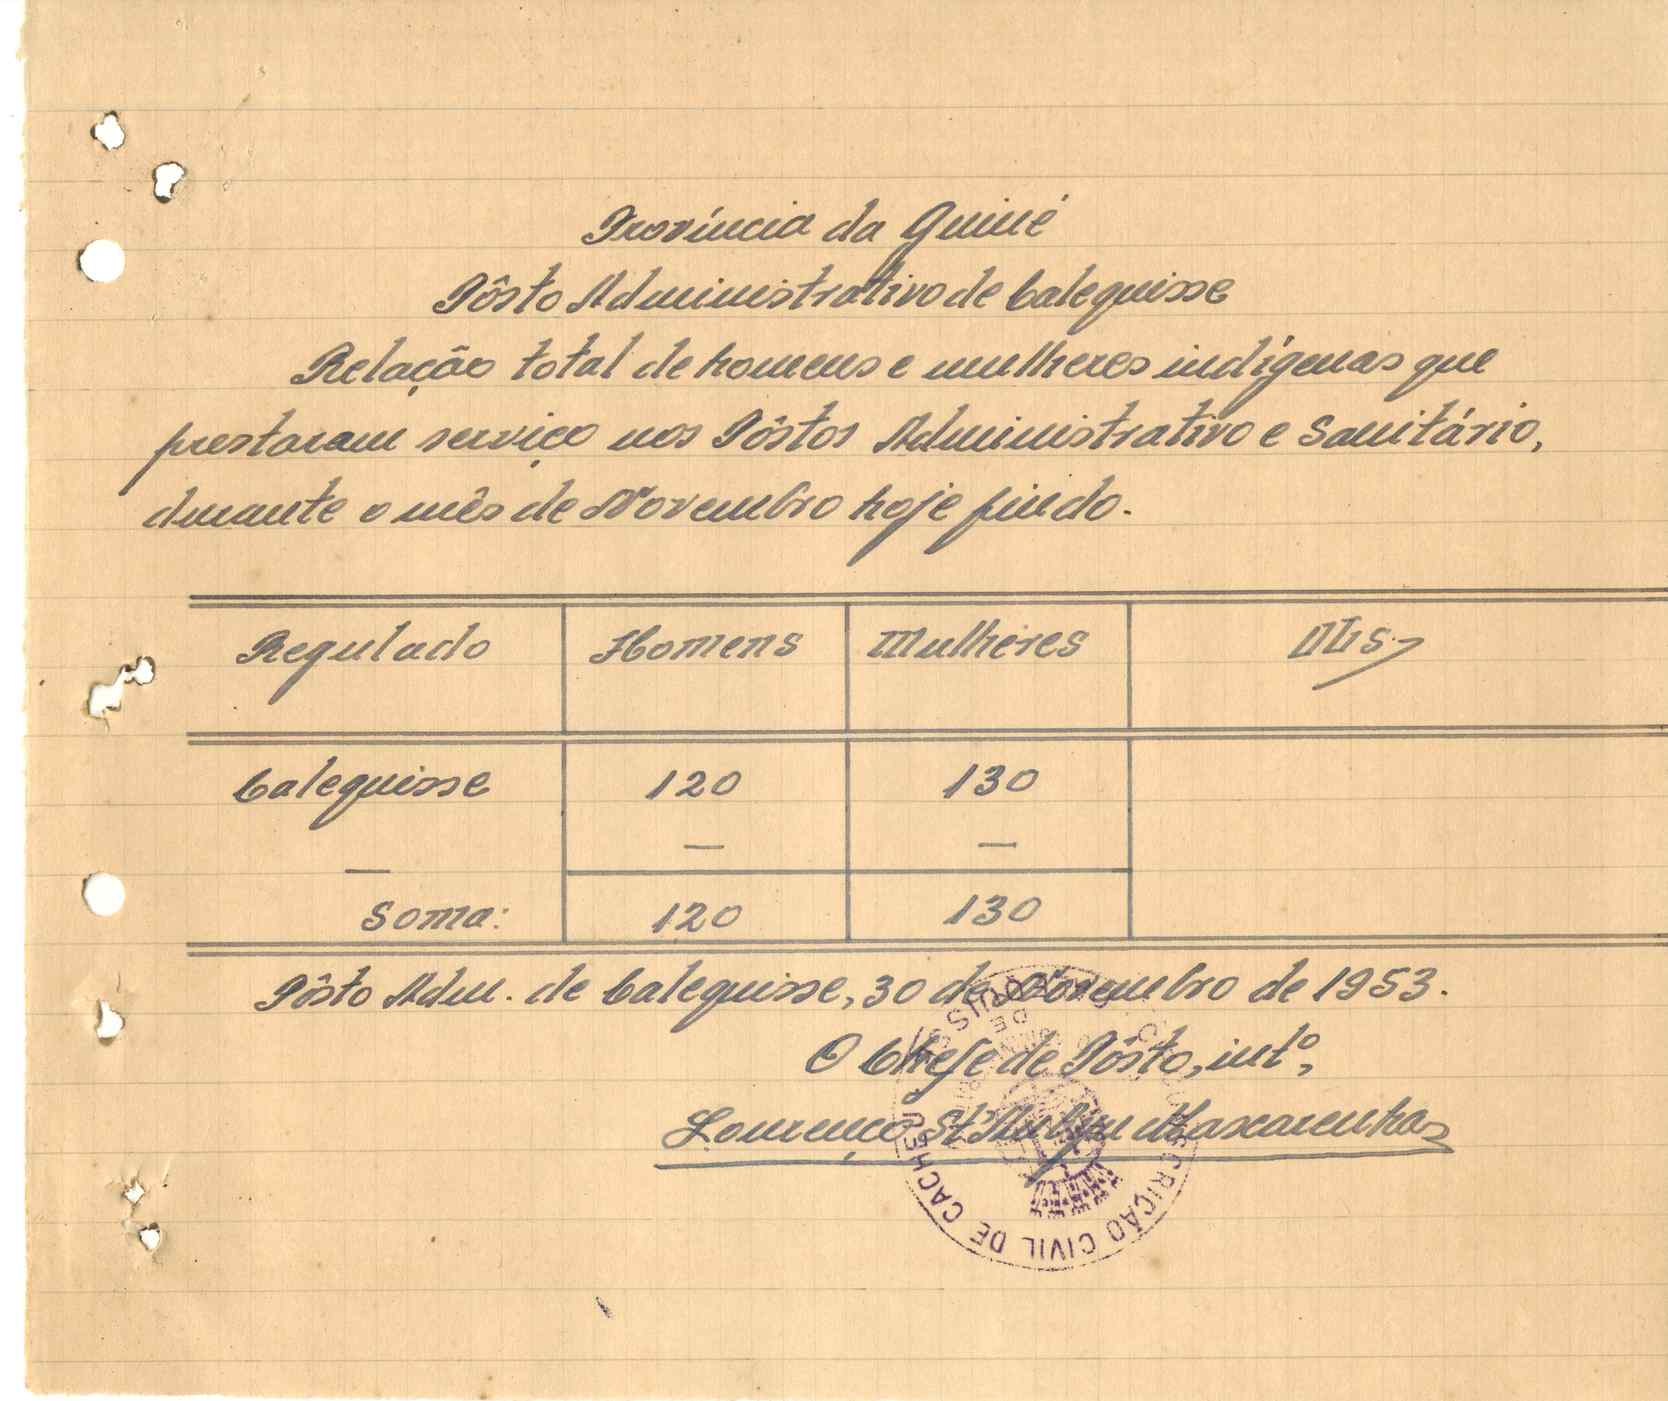 Província da Guiné
Pôsto Administrativo de Calequisse
Relação total de homens e mulheres indígenas que
prestaram serviço nos Póstos Administrativo e Sanitário,
durante o mês de Novembro hoje findo.
Regulado Homens Mulheres Obs.
Calequisse 120 130
— — —
Soma: 120 130
Pôsto Adm. de Calequisse, 30 de Novembro de 1953.
O Chefe de Pôsto, intº,
Lourenço St'Aubyn Mascarenhas
CIRCUNSCRIÇÃO CIVIL DE CACHEU